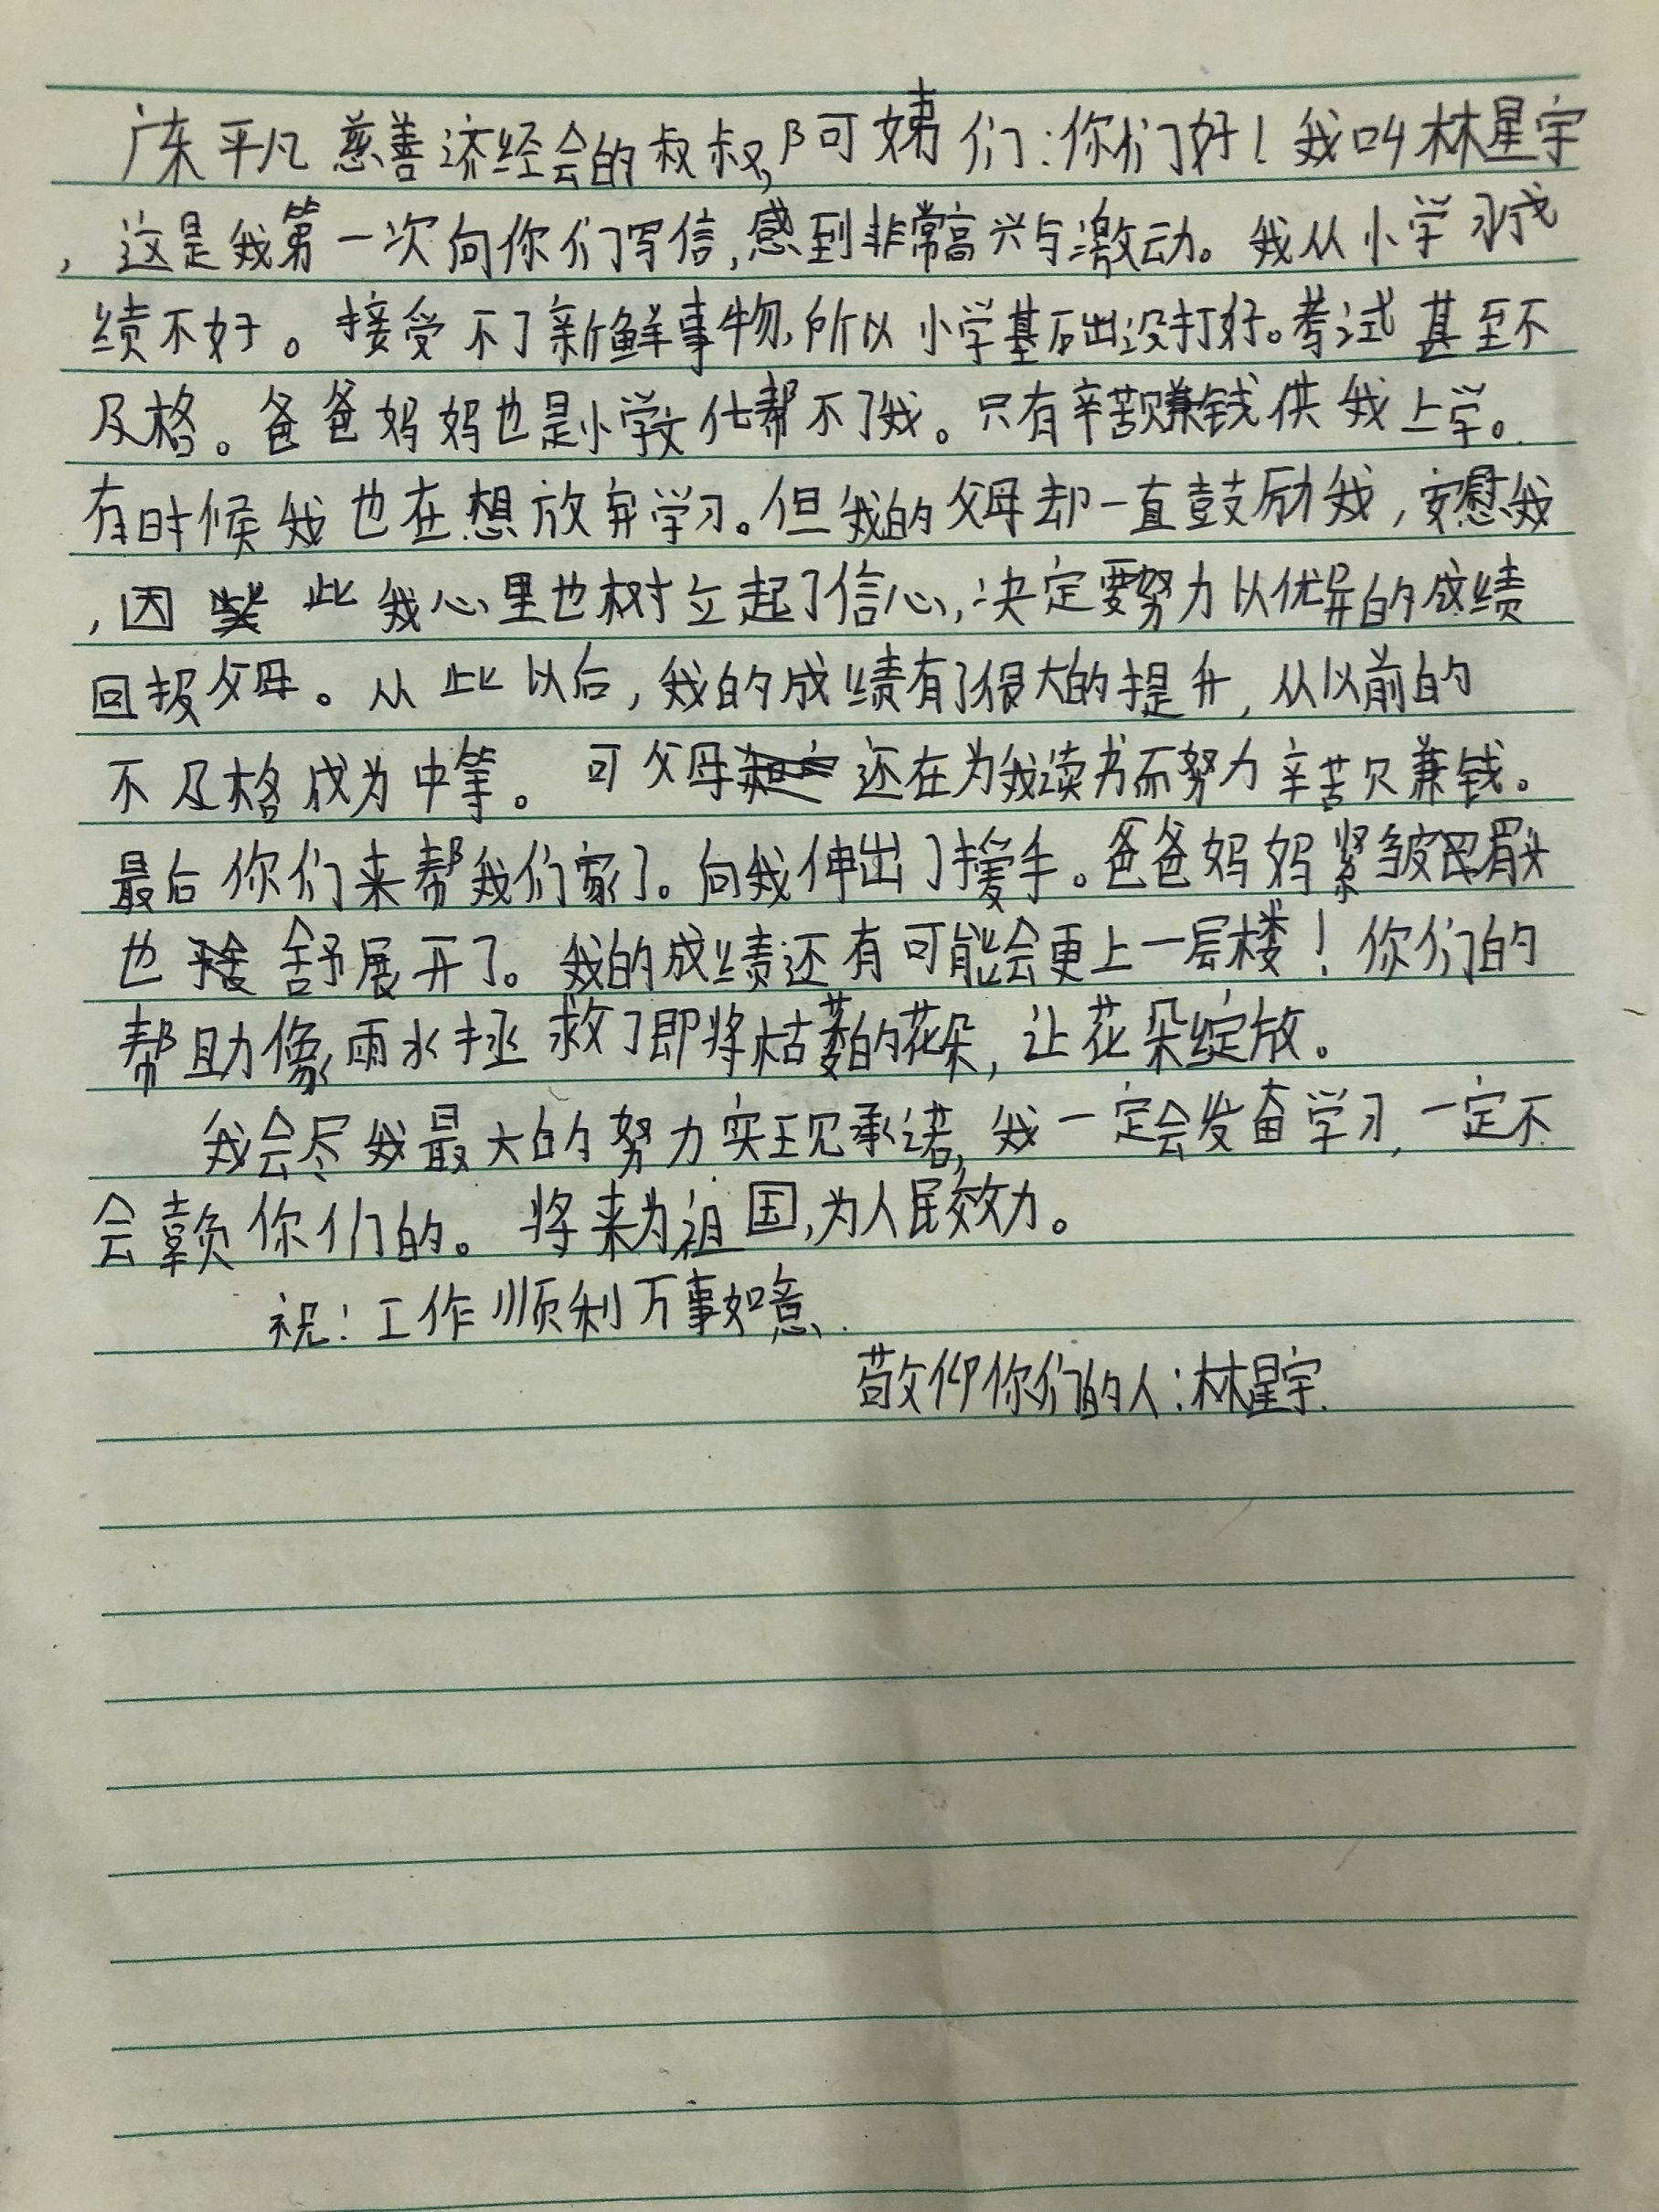 广东平凡慈善济经会的叔叔,阿姨们:你们好!我叫林星宇
,这是我第一次向你们写信,感到非常高兴与激动。我从小学习成
绩不好。接受不了新鲜事物,所以小学基础没打好。考试甚至不
及格。爸爸妈妈也是小学文化帮不了我。只有辛苦赚钱供我上学。
有时候我也在想放弃学习。但我的父母却一直鼓励我,安慰我
,因此我心里也树立起了信心,决定要努力以优异的成绩
回报父母。从此以后,我的成绩有了很大的提升,从以前的
不及格成为中等。可父母还在为我读书而努力辛苦赚钱。
最后你们来帮我们家了。向我伸出了援手。爸爸妈妈紧皱眉头
也舒展开了。我的成绩还有可能会更上一层楼!你们的
帮助像雨水拯救了即将枯萎的花朵,让花朵绽放。
我会尽我最大的努力实现承诺,我一定会发奋学习,一定不
会辜负你们的。将来为祖国,为人民效力。
祝:工作顺利万事如意.
敬仰你们的人:林星宇.